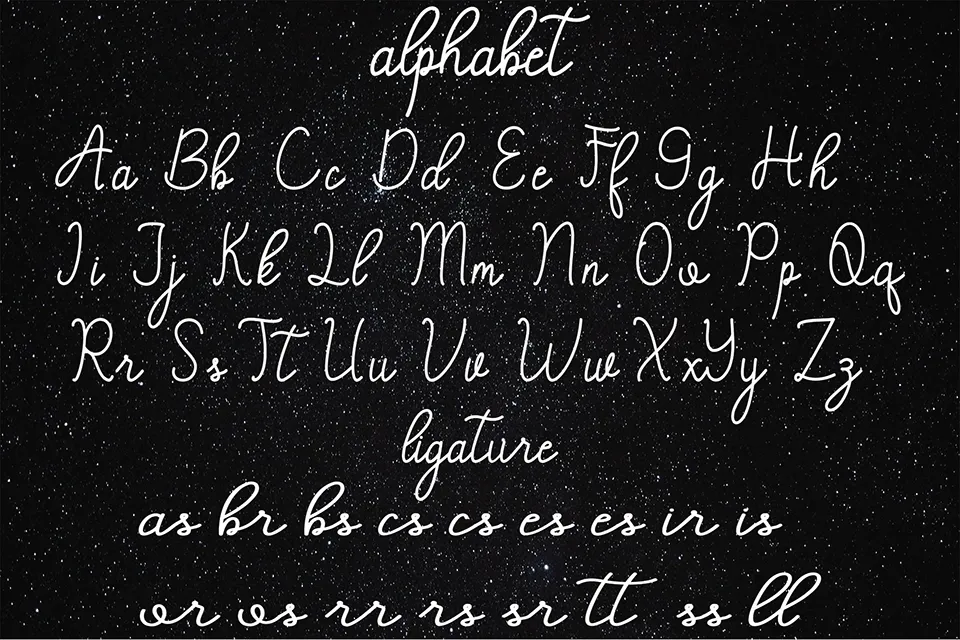 alphabet
Aa Bb Cc Dd Ee Ff Gg Hh
Ii Jj Kk Ll Mm Nn Oo Pp Qq
Rr Ss Tt Uu Vv Ww Xx Yy Zz
ligature
as br bs cs cs es es ir is
or os rr rs sr tt ss ll